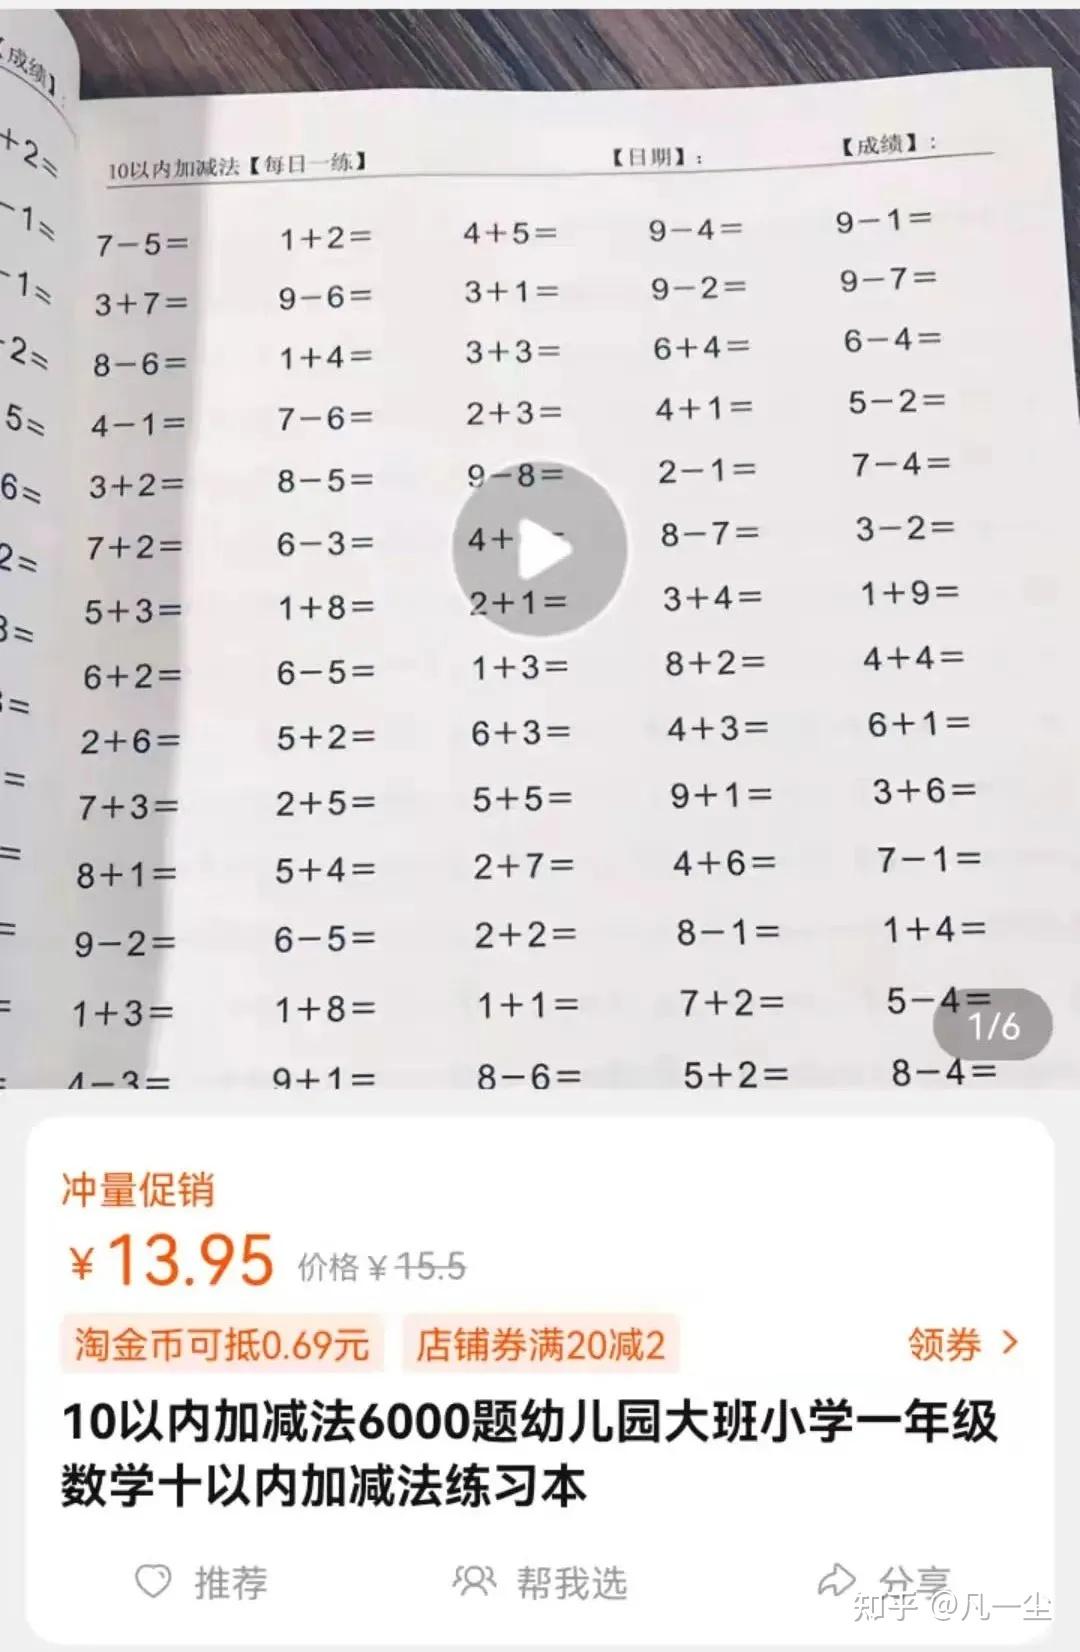 【成绩】:
+2=
-1=
-1=
-2=
5=
6=
2=
3=
=
=
=
=
=
10以内加减法【每日一练】 【日期】: 【成绩】:
7-5= 1+2= 4+5= 9-4= 9-1=
3+7= 9-6= 3+1= 9-2= 9-7=
8-6= 1+4= 3+3= 6+4= 6-4=
4-1= 7-6= 2+3= 4+1= 5-2=
3+2= 8-5= 9-8= 2-1= 7-4=
7+2= 6-3= 4+ = 8-7= 3-2=
5+3= 1+8= 2+1= 3+4= 1+9=
6+2= 6-5= 1+3= 8+2= 4+4=
2+6= 5+2= 6+3= 4+3= 6+1=
7+3= 2+5= 5+5= 9+1= 3+6=
8+1= 5+4= 2+7= 4+6= 7-1=
9-2= 6-5= 2+2= 8-1= 1+4=
1+3= 1+8= 1+1= 7+2= 5-4=
4-3= 9+1= 8-6= 5+2= 8-4=
1/6
冲量促销
¥13.95 价格¥15.5
淘金币可抵0.69元 店铺券满20减2 领券 >
10以内加减法6000题幼儿园大班小学一年级
数学十以内加减法练习本
推荐 帮我选 分享
知乎 @凡一尘